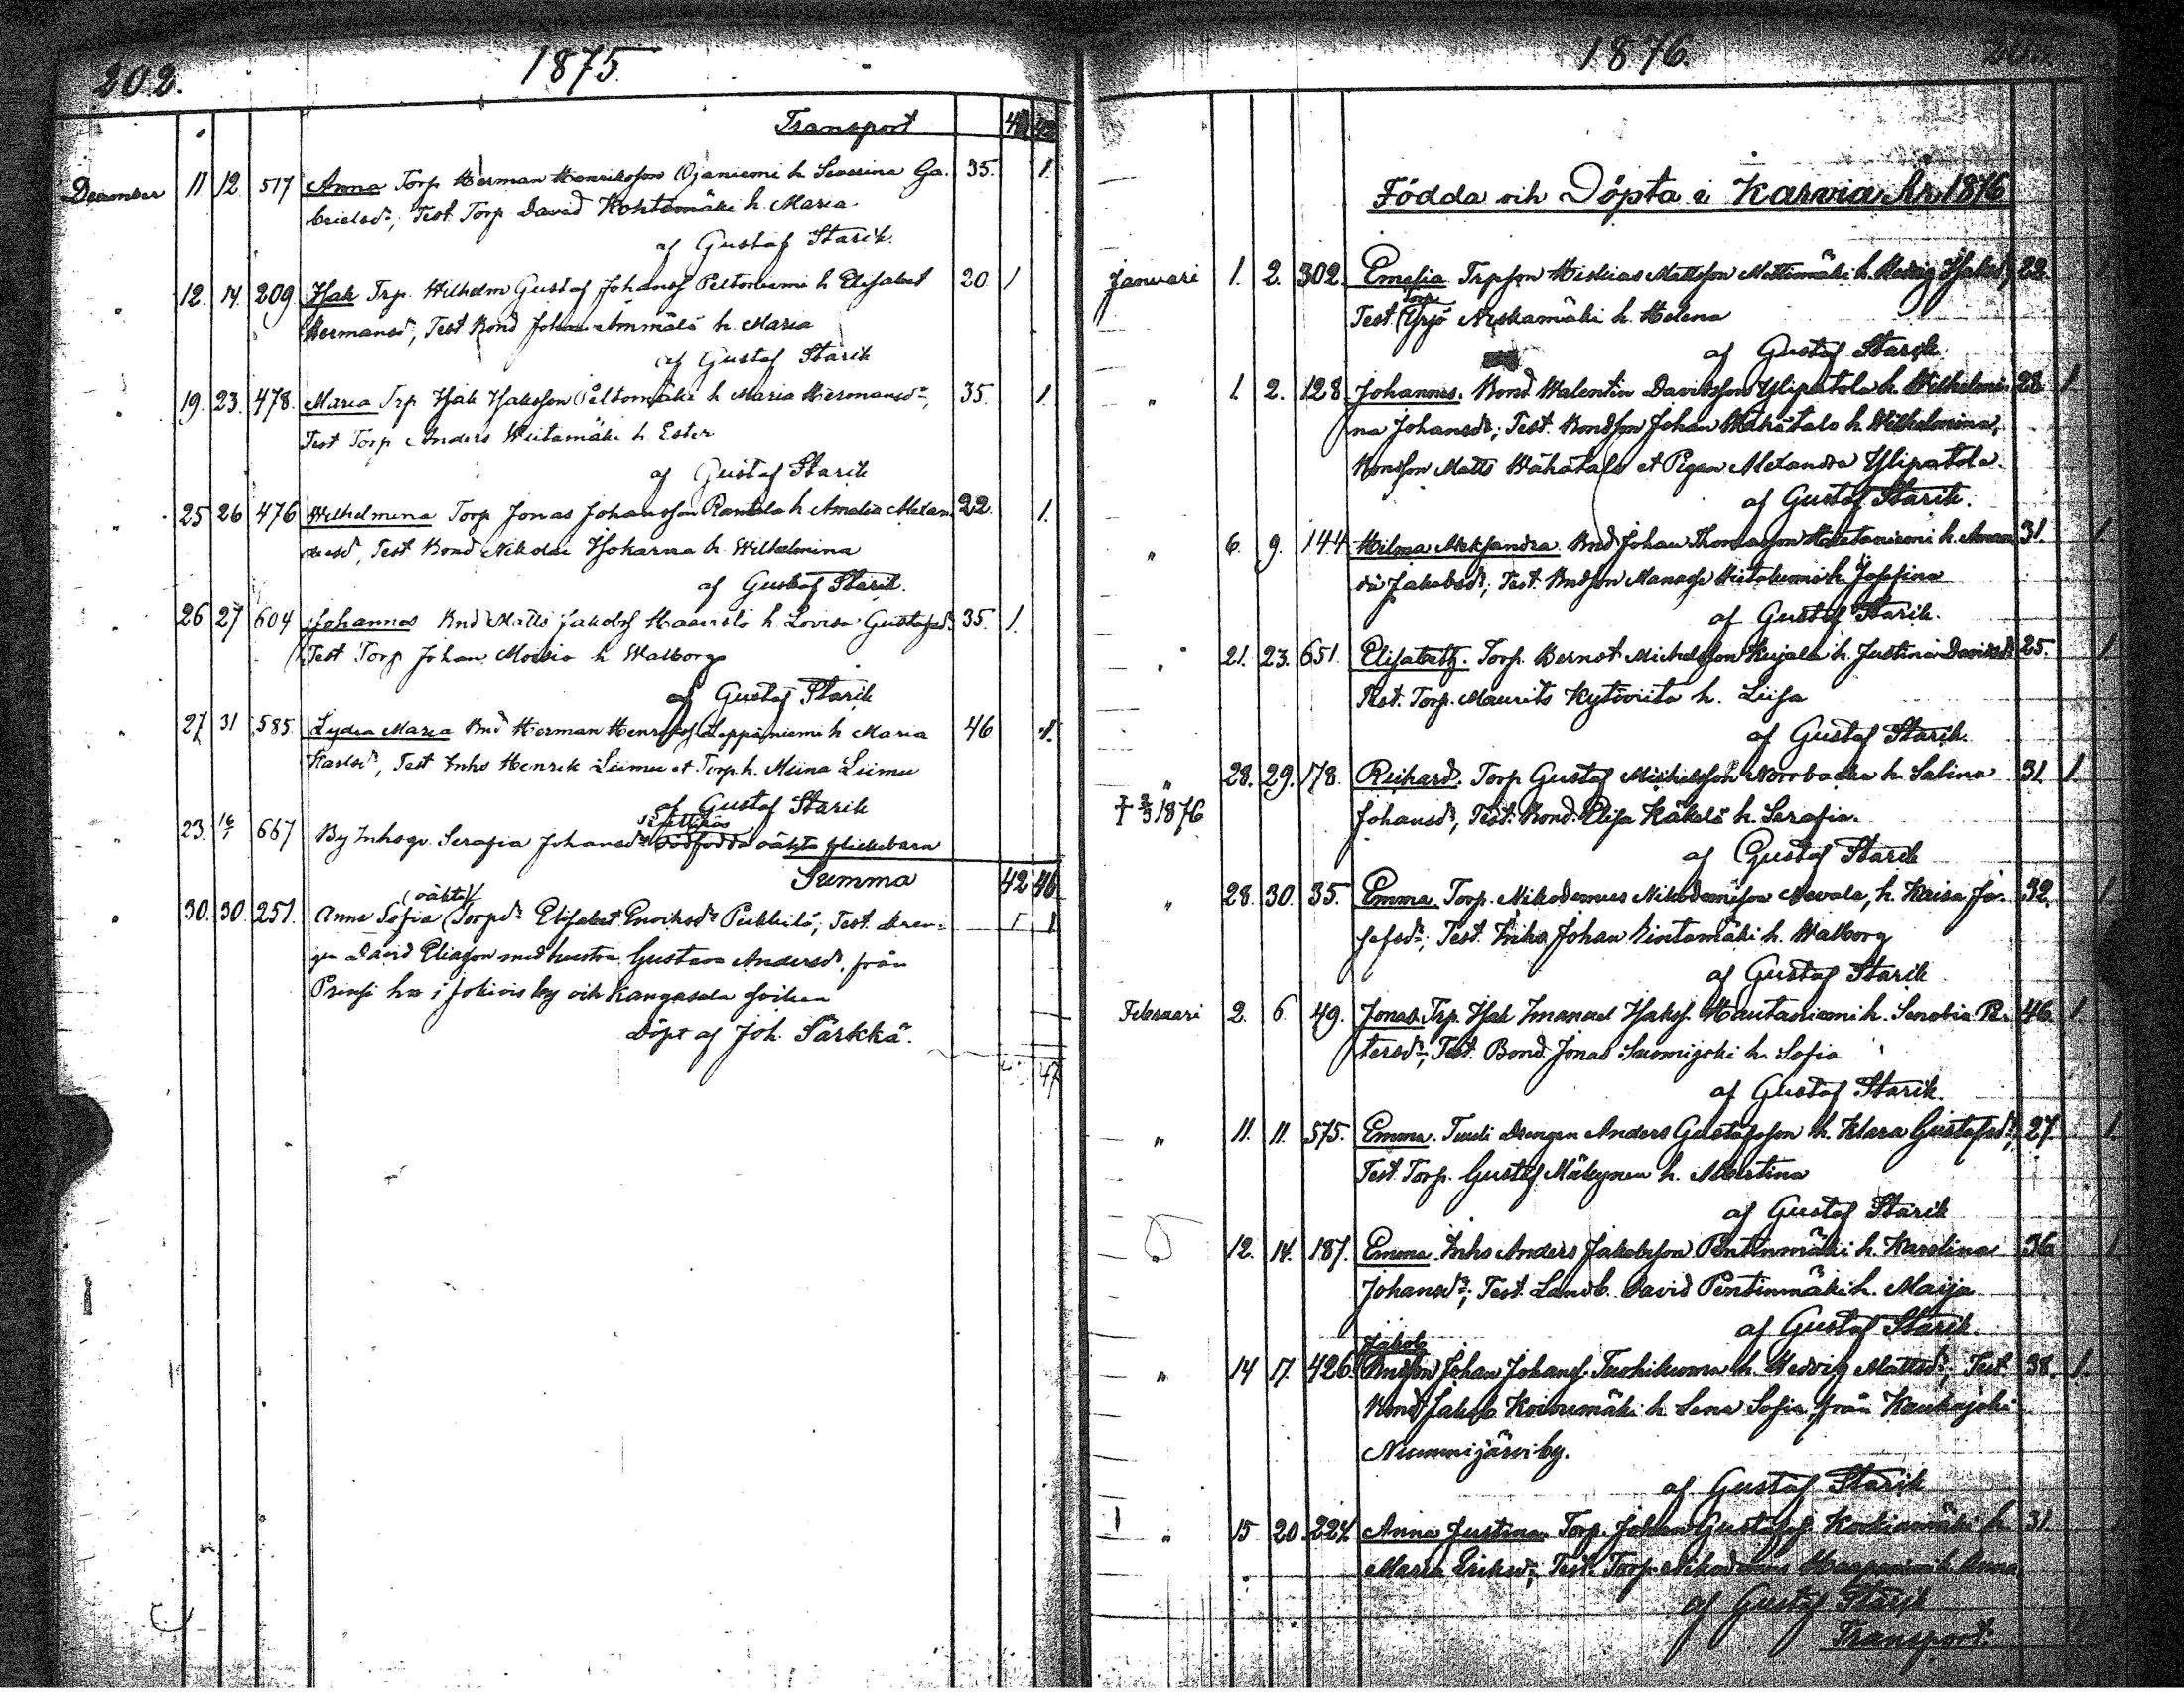 202.
1875.
Transport
December 11 12 517 Anna Torp Herman Henriksson Ojaniemi h Severina Ga- 35. 1
brielsdr; Test Torp David Kohtamäki h. Maria
af Gustaf Starck.
" 12. 14 209 Isak Trp. Wilhelm Gustaf Johansf Peltoniemi h Elisabet 20 1
Hermansdr; Test Bond Johan Ammälä h. Maria
af Gustaf Starck
" 19. 23. 478. Maria Trp Isak Isaksson Peltomäki h Maria Hermansdr, 35. 1.
Test Torp Anders Weitamäki h. Ester
af Gustaf Starck
" 25 26 476 Wilhelmina Torp Jonas Johansson Rantala h Amalia 22. 1.
Test Bond Nikolai h. Wilhelmina
af Gustaf Starck.
" 26 27 604 Johannes Bnd Matts Jakobsf h Lovisa Gustafsdr 35. 1.
Test Torp Johan Moisio h Walborg
af Gustaf Starck
" 27 31 585. Lydia Maria Bnd Herman Henriksf Leppäniemi h Maria 46 1.
Karlsdr, Test Inhs Henrik Liimu et Torp.h. Miina Liimu
af Gustaf Starck
" 23. 667 By Inhsqv. Serafia Johansdr dödfödda oäkta flickebarn
Summa 42 46
(oäkta)
" 30. 30. 251. Anna Sofia Torpdr Elisabet Enoksdr Test. dren- 1 1
gen David Eliasson med hustru Gustava Andersdr, från
i Jokivis by och Kangasala
Döpt af Joh. Särkkä.
47
1876.
Födda och Döpta i Karvia År 1876
Januari 1. 2. 302. Emelia Trpson Hiskias Mattsson Mattinmäki h. Hedvig Isaksdr; 22.
Torp
Test. Yrjö Niskamäki h. Helena
af Gustaf Starck.
" 1. 2. 128. Johannes. Bond. Walentin Davidsson Ylipatola h. Wilhelmi- 28 1
na Johansdr; Test. Bondson Johan Wähätalo h. Wilhelmina,
Bondson Matts Wähätalo et Pigan Alexandra Ylipatola.
af Gustaf Starck.
" 6. 9. 144. Hilma Aleksandra. Bnd Johan Thomasson Hautaniemi h. Aman- 31. 1
da Jakobsdr; Test. Bndson Manasse h. Josefina
af Gustaf Starck.
" 21. 23. 651. Elisabeth. Torp. Bernst. Michelsson Kujala h. Justina Davidsdr 25. 1
Test. Torp. Maurits Kytöviita h. Liisa
af Gustaf Starck.
" 28. 29. 178. Reikard. Torp Gustaf Michelsson Norrbacka h. Salina 31 1
† 2/3 1876 Johansdr, Test. Bond. Elisa Käkelä h. Serafia.
af Gustaf Starck
" 28. 30. 35. Emma. Torp. Nikodemus Nikodemisson Nevala, h. Kaisa Jo- 32. 1
sefsdr; Test. Inhs Johan Rintamäki h. Walborg
af Gustaf Starck
Februari 2. 6 49. Jonas. Trp. Isak Imanuel Isaksf. Hautaniemi h. Senobia Pe- 46 1
tersdr; Test. Bond. Jonas Suomijoki h. Sofia
af Gustaf Starck.
" 11. 11. 575. Emma. Tuuli Drengen Anders Gustafsson h. Klara Gustafsdr; 27. 1.
Test Torp. Gustaf Mäkynen h. Albertina
af Gustaf Starck
" 12. 14. 187. Emma. Inhs Anders Jakobsson Pentinmäki h. Karolina 36 1
Johansdr; Test. Landb. David Pentinmäki h. Maija
af Gustaf Starck.
Jakob
" 14 17. 426. Bndson Johan Johansf. Tuohiluoma h. Hedvig Mattsdr, Test 38. 1.
Bond Jakob Koivumäki h. Lena Sofia från Kauhajoki
Nummijärvi by.
af Gustaf Starck
" 15 20 224. Anna Justina Torp. Johan Gustafsf. h 31.
Maria Eriksdr; Test. Torp. Nikodemus h. Anna
af Gustaf Starck
Transport